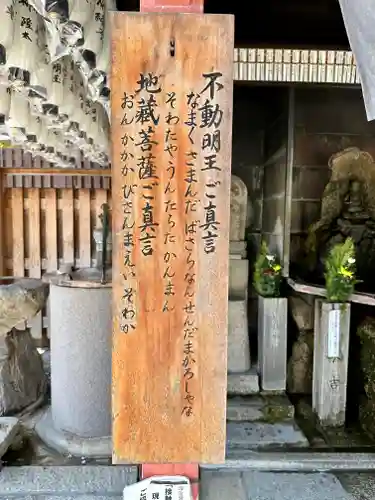 不動明王ご真言
なまくさまんだ ばさらなんせんだまかろしゃな
そわたやうんたらたかんまん
地蔵菩薩ご真言
おんかかかびさんまえい そわか